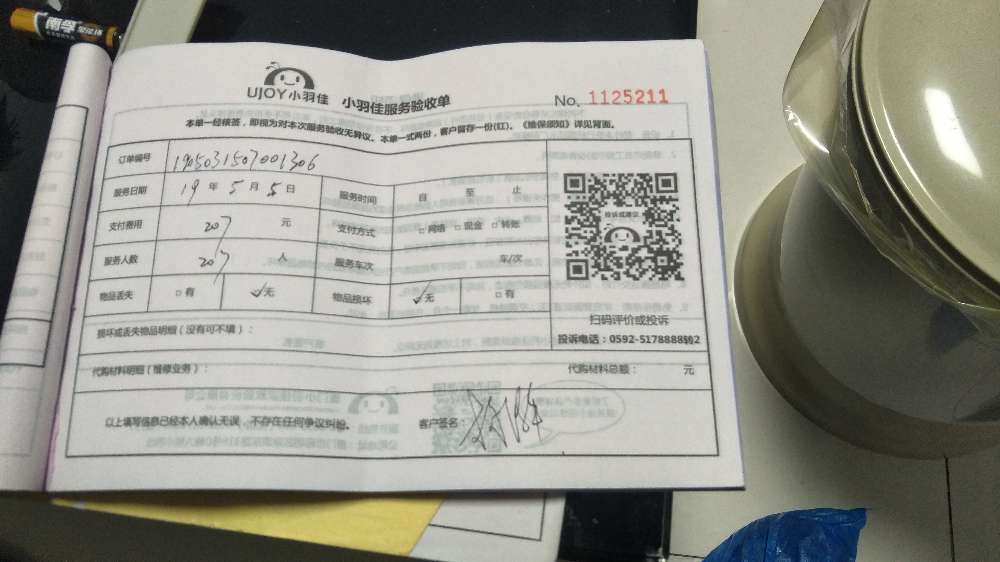 南孚
UJOY小羽佳 小羽佳服务验收单 No. 1125211
本单一经核签，即视为对本次服务验收无异议。本单一式两份，客户留存一份(红)。《维保须知》详见背面。
订单编号 1905031507001306
服务日期 19 年 5 月 5 日 服务时间 自 至 止
支付费用 207 元 支付方式 □网络 □现金 □转账
服务人数 207 人 服务车次 车/次
物品丢失 □有 ✓无 物品损坏 ✓无 □有
投诉或建议
扫码评价或投诉
投诉电话：0592-5178888转2
损坏或丢失物品明细（没有可不填）：
代购材料明细（维修业务）： 代购材料总额： 元
以上填写信息已经本人确认无误，不存在任何争议纠纷。 客户签名：